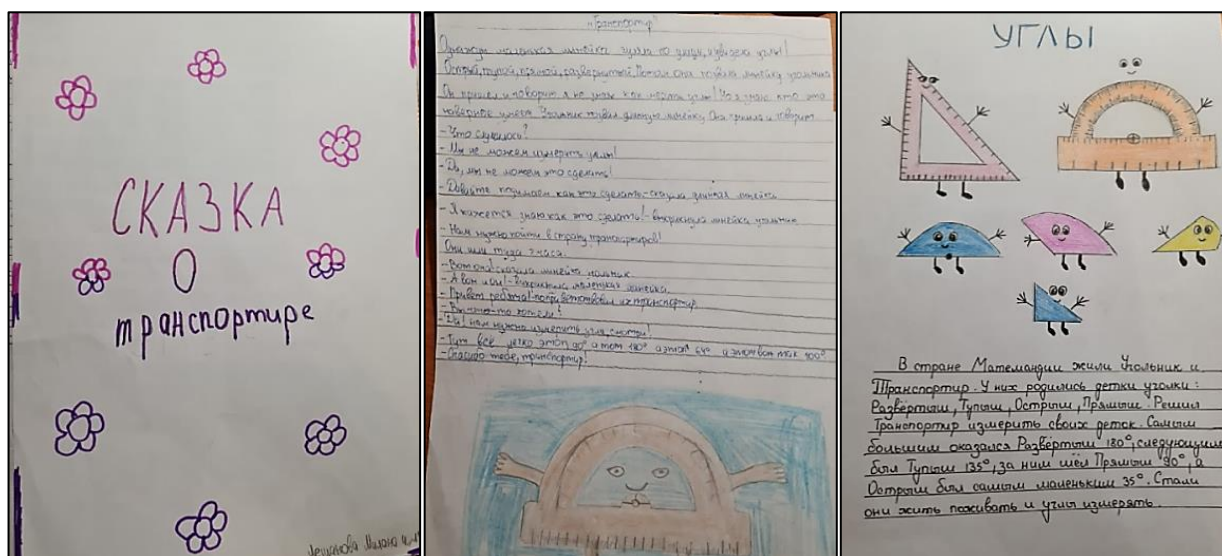 СКАЗКА
О
транспортире
Милана
"Транспортир"
Однажды маленькая линейка гуляла по улице, и увидела углы!
Острый, тупой, прямой, развернутый. Потом она позвала линейку угольника
Он пришел и говорит я не знаю как мерить углы! Но я знаю кто это
наверное умеет. Угольник позвал длинную линейку. Она пришла и говорит
- Что случилось?
- Мы не можем измерить углы!
- Да, мы не можем это сделать!
- Давайте подумаем как это сделать - сказала длинная линейка
- Я кажется знаю как это сделать! - выкрикнула линейка угольник
- Нам нужно пойти в страну транспортиров!
Они шли туда 2 часа.
- Вот она! сказала линейка угольник.
- А вон и он! - маленькая линейка.
- Привет ребята! поприветствовал их транспортир
- Вы что-то хотели?
- Да! нам нужно измерить углы, смотри!
- Тут все легко этот 90° а тот 180° а этот 64° а этот вот так 100°
- Спасибо тебе, транспортир!
УГЛЫ
В стране Математии жили Угольник и
Транспортир. У них родились детки уголки:
Развёртыш, Тупыш, Острыш, Прямыш. Решил
Транспортир измерить своих деток. Самым
большим оказался Развёртыш 180°, следующим
был Тупыш 135°, за ним шёл Прямыш 90°, а
Острыш был самым маленьким 35°. Стали
они жить поживать и углы измерять.